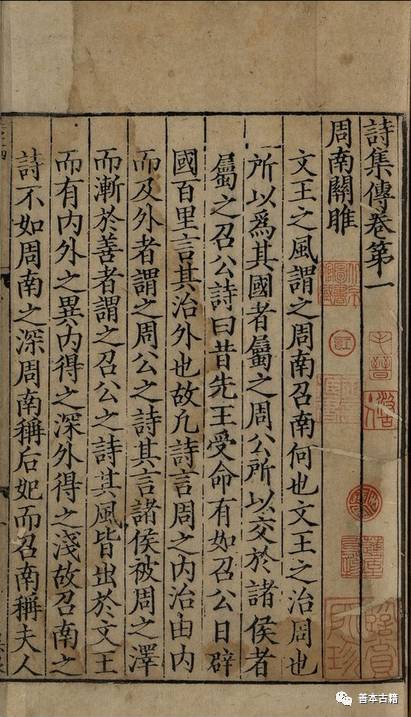 詩集傳卷第一
周南關雎
文王之風謂之周南召南何也文王之治周也
所以爲其國者屬之周公所以交於諸侯者
屬之召公詩曰昔先王受命有如召公日辟
國百里言其治外也故凢詩言周之内治由内
而及外者謂之周公之詩其言諸侯被周之澤
而漸於善者謂之召公之詩其風皆出於文王
而有内外之異内得之深外得之淺故召南之
詩不如周南之深周南稱后妃而召南稱夫人
子晉
善本古籍